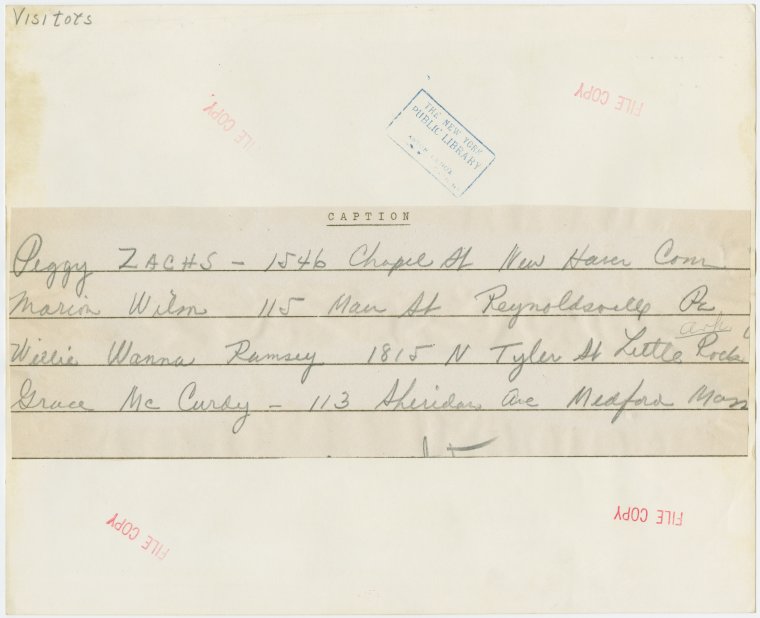 Visitors
FILE COPY
FILE COPY
THE NEW YORK
PUBLIC LIBRARY
CAPTION
Peggy ZACHS - 1546 Chapel St New Haven Conn
Marion Wilson 115 Main St Reynoldsville Pa
Ark
Willie Wanna Ramsey 1815 N Tyler St Little Rock
Grace Mc Curdy - 113 Sheridan Ave Medford Mass
FILE COPY
FILE COPY